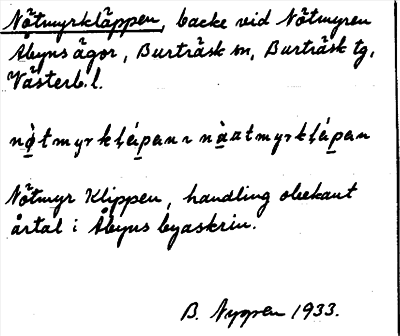 Nötmyrkläppen, backe vid Nötmyren
Åbyns ägor, Burträsk sn, Burträsk tg,
Västerb. l.
nø̀tmyrkḷápan ~ nàatmyrkḷápan
Nötmyr Klippen, handling obekant
årtal i Åbyns byaskrin.
B. Nygren 1933.